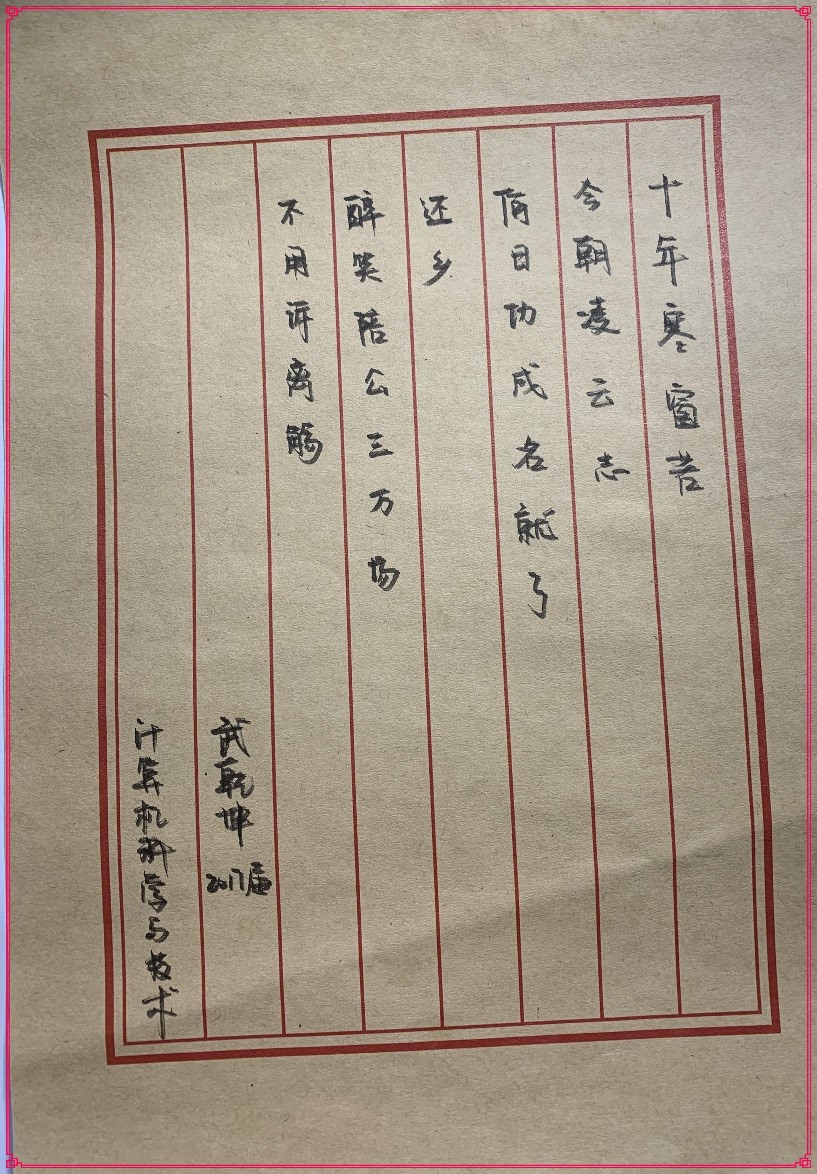 十年寒窗苦
今朝凌云志
何日功成名就了
还乡
醉笑陪公三万场
不用诉离觞
武乾坤 2017届
计算机科学与技术